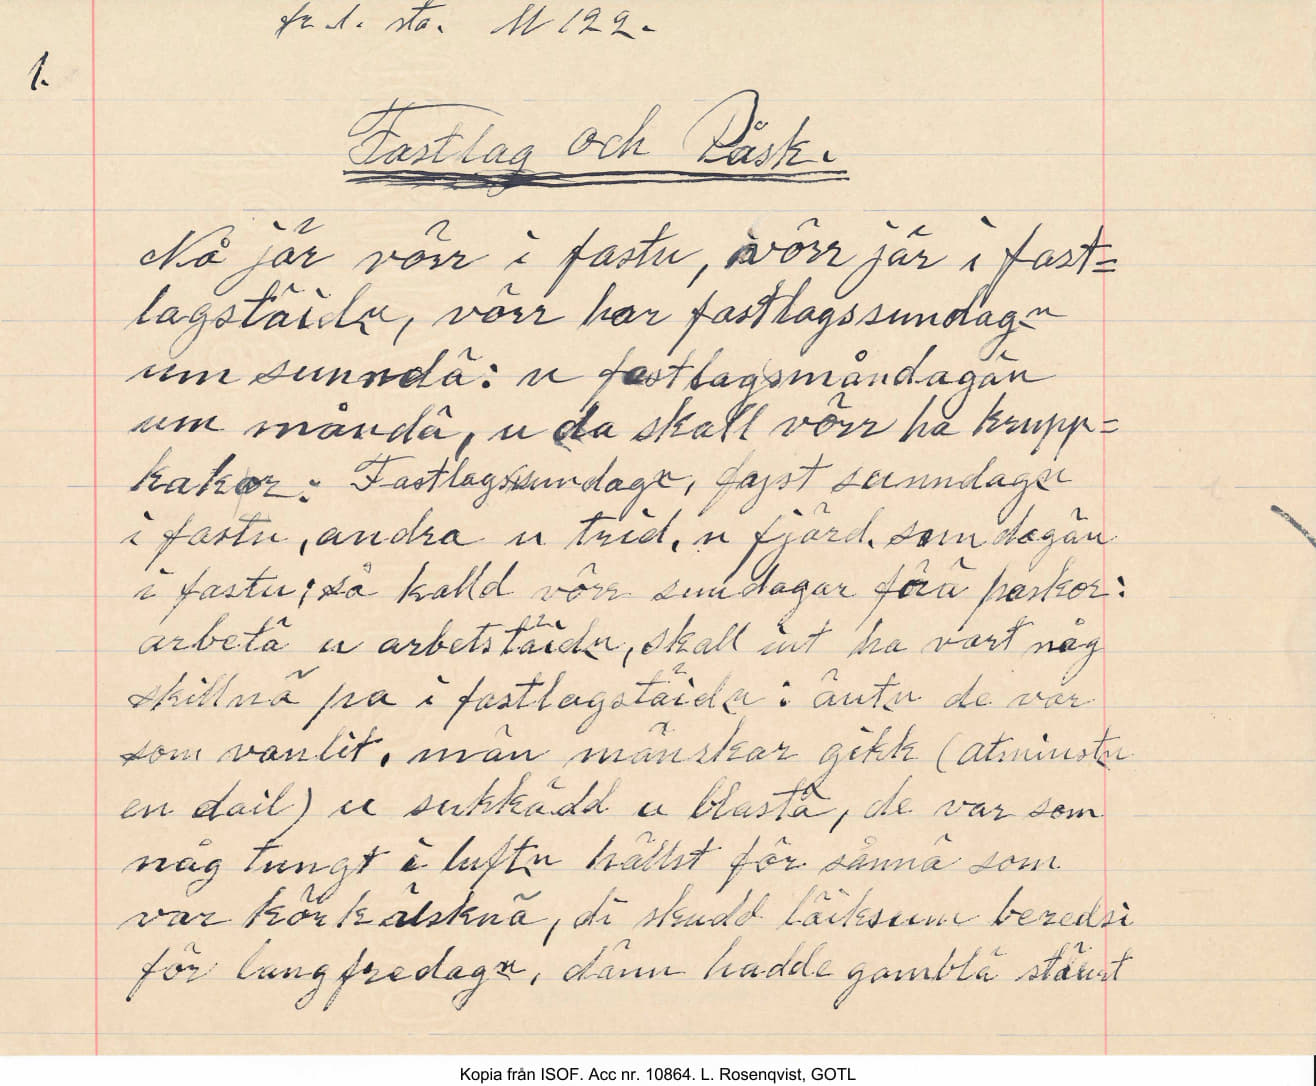 fr. l. sta. M 122.
1.
Fastlag och Påsk.
Nå jär võrr i fastu, võrr jär i fast=
lagstäidn, võrr har fastlagssundagn
um sunndã: u fastlagsmåndagän
um måndã, u da skall võrr ha krupp=
kakor: Fastlagssundagn, fajst sunndagn
i fastu, andra u trid, u fjärd, sundagän
i fastu; så kalld võrr sundagar förã paskor:
arbetã u arbetstäidn, skall int ha vart någ
skillnã pa i fastlagstäidn: äutn de var
som vanlit, män mänskar gikk (atminstn
en dail) u sukkädd u blastã, de var som
någ tungt i luftn hällst för sånnã som
var körkälsknã, di skudd läiksum beredsi
för langfredagn, dänn hadde gamblã stäurt
Kopia från ISOF. Acc nr. 10864. L. Rosenqvist, GOTL